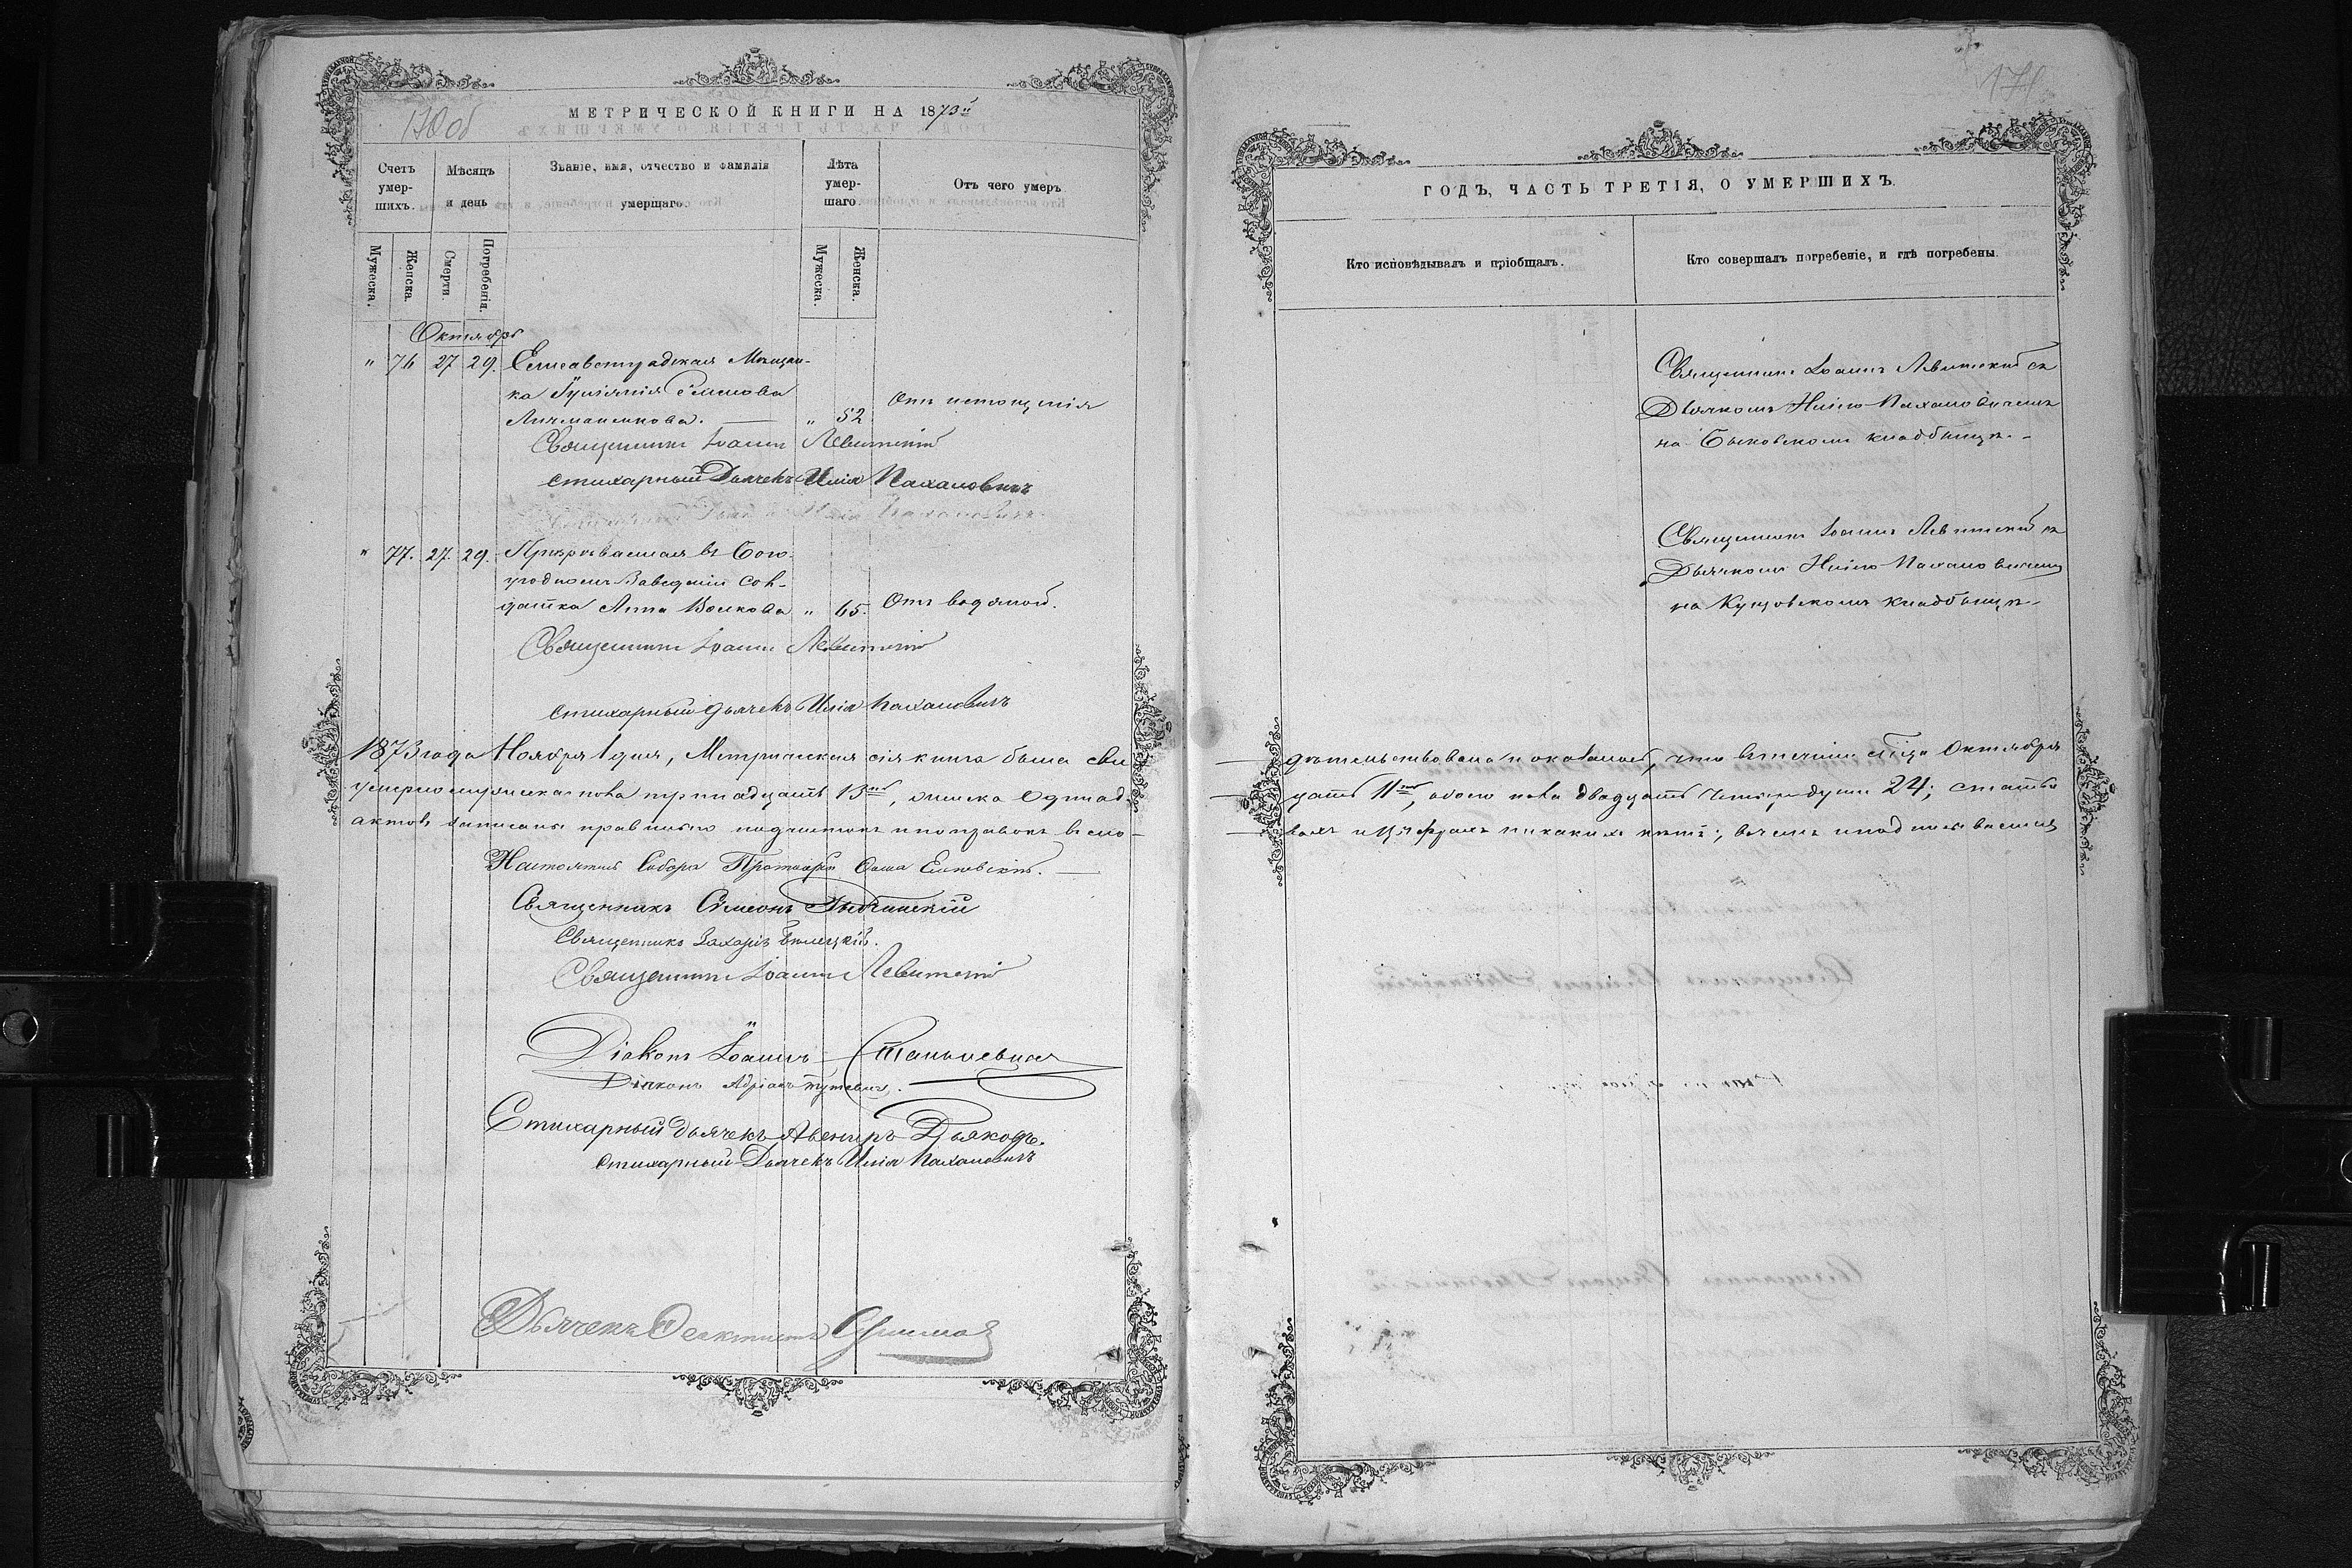 170об
МЕТРИЧЕСКОЙ КНИГИ НА 1873й
Счетъ умер-шихъ.
Мѣсяцъ и день
Званіе, имя, отчество и фамилія умершаго.
Лѣта умер-шаго
Отъ чего умеръ
Мужеска.
Женска.
Смерти.
Погребенія.
Мужеска.
Женска.
Октябрь
" 76 27 29. Елисаветградская Мѣщан-
ка Семенова
" 52 Отъ истощенія
Священникъ Іоаннъ Левитскій
стихарный Дьячекъ Илія Пахаловичъ
" 77. 27. 29. Призрѣваемая въ Бого-
угодномъ Заведеніи сол-
датка Анна Волкова " 65. Отъ водяной.
Священникъ Іоаннъ Левитскій
стихарный дьячекъ Илія Пахаловичъ
1873 года Ноября 1 дня, Метрическая сія книга была сви
умерло мужеска пола тринадцать 13ть, женска одинад-
актовъ записаны правильно подчистокъ и поправокъ въ сло-
Настоятель Собора Протоіерей
Священникъ Симеонъ
Священникъ Захарія Билецкій.
Священникъ Іоаннъ Левитскій
Діаконъ Іоаннъ
Діаконъ Адріанъ
Стихарный дьячекъ Авениръ
Стихарный Дьячекъ Илія Пахаловичъ
Дьячекъ Феоктистъ
171
ГОДЪ, ЧАСТЬ ТРЕТІЯ, О УМЕРШИХЪ.
Кто исповѣдывалъ и пріобщалъ.
Кто совершалъ погребеніе, и гдѣ погребены.
Священникъ Іоаннъ Левитскій съ
Дьячкомъ Иліею Пахаловичемъ
на Быковскомъ кладбищѣ.
Священникъ Іоаннъ Левитскій съ
Дьячкомъ Иліею Пахаловичемъ
на Кущовскомъ кладбищѣ.
дѣтельствована и оказалось, что въ теченіи мѣсяца Октября
цать 11ть, обоего пола двадцать четыре души 24; статьи
вахъ и цыфрахъ никакихъ нѣтъ; въ чемъ и подписываемся